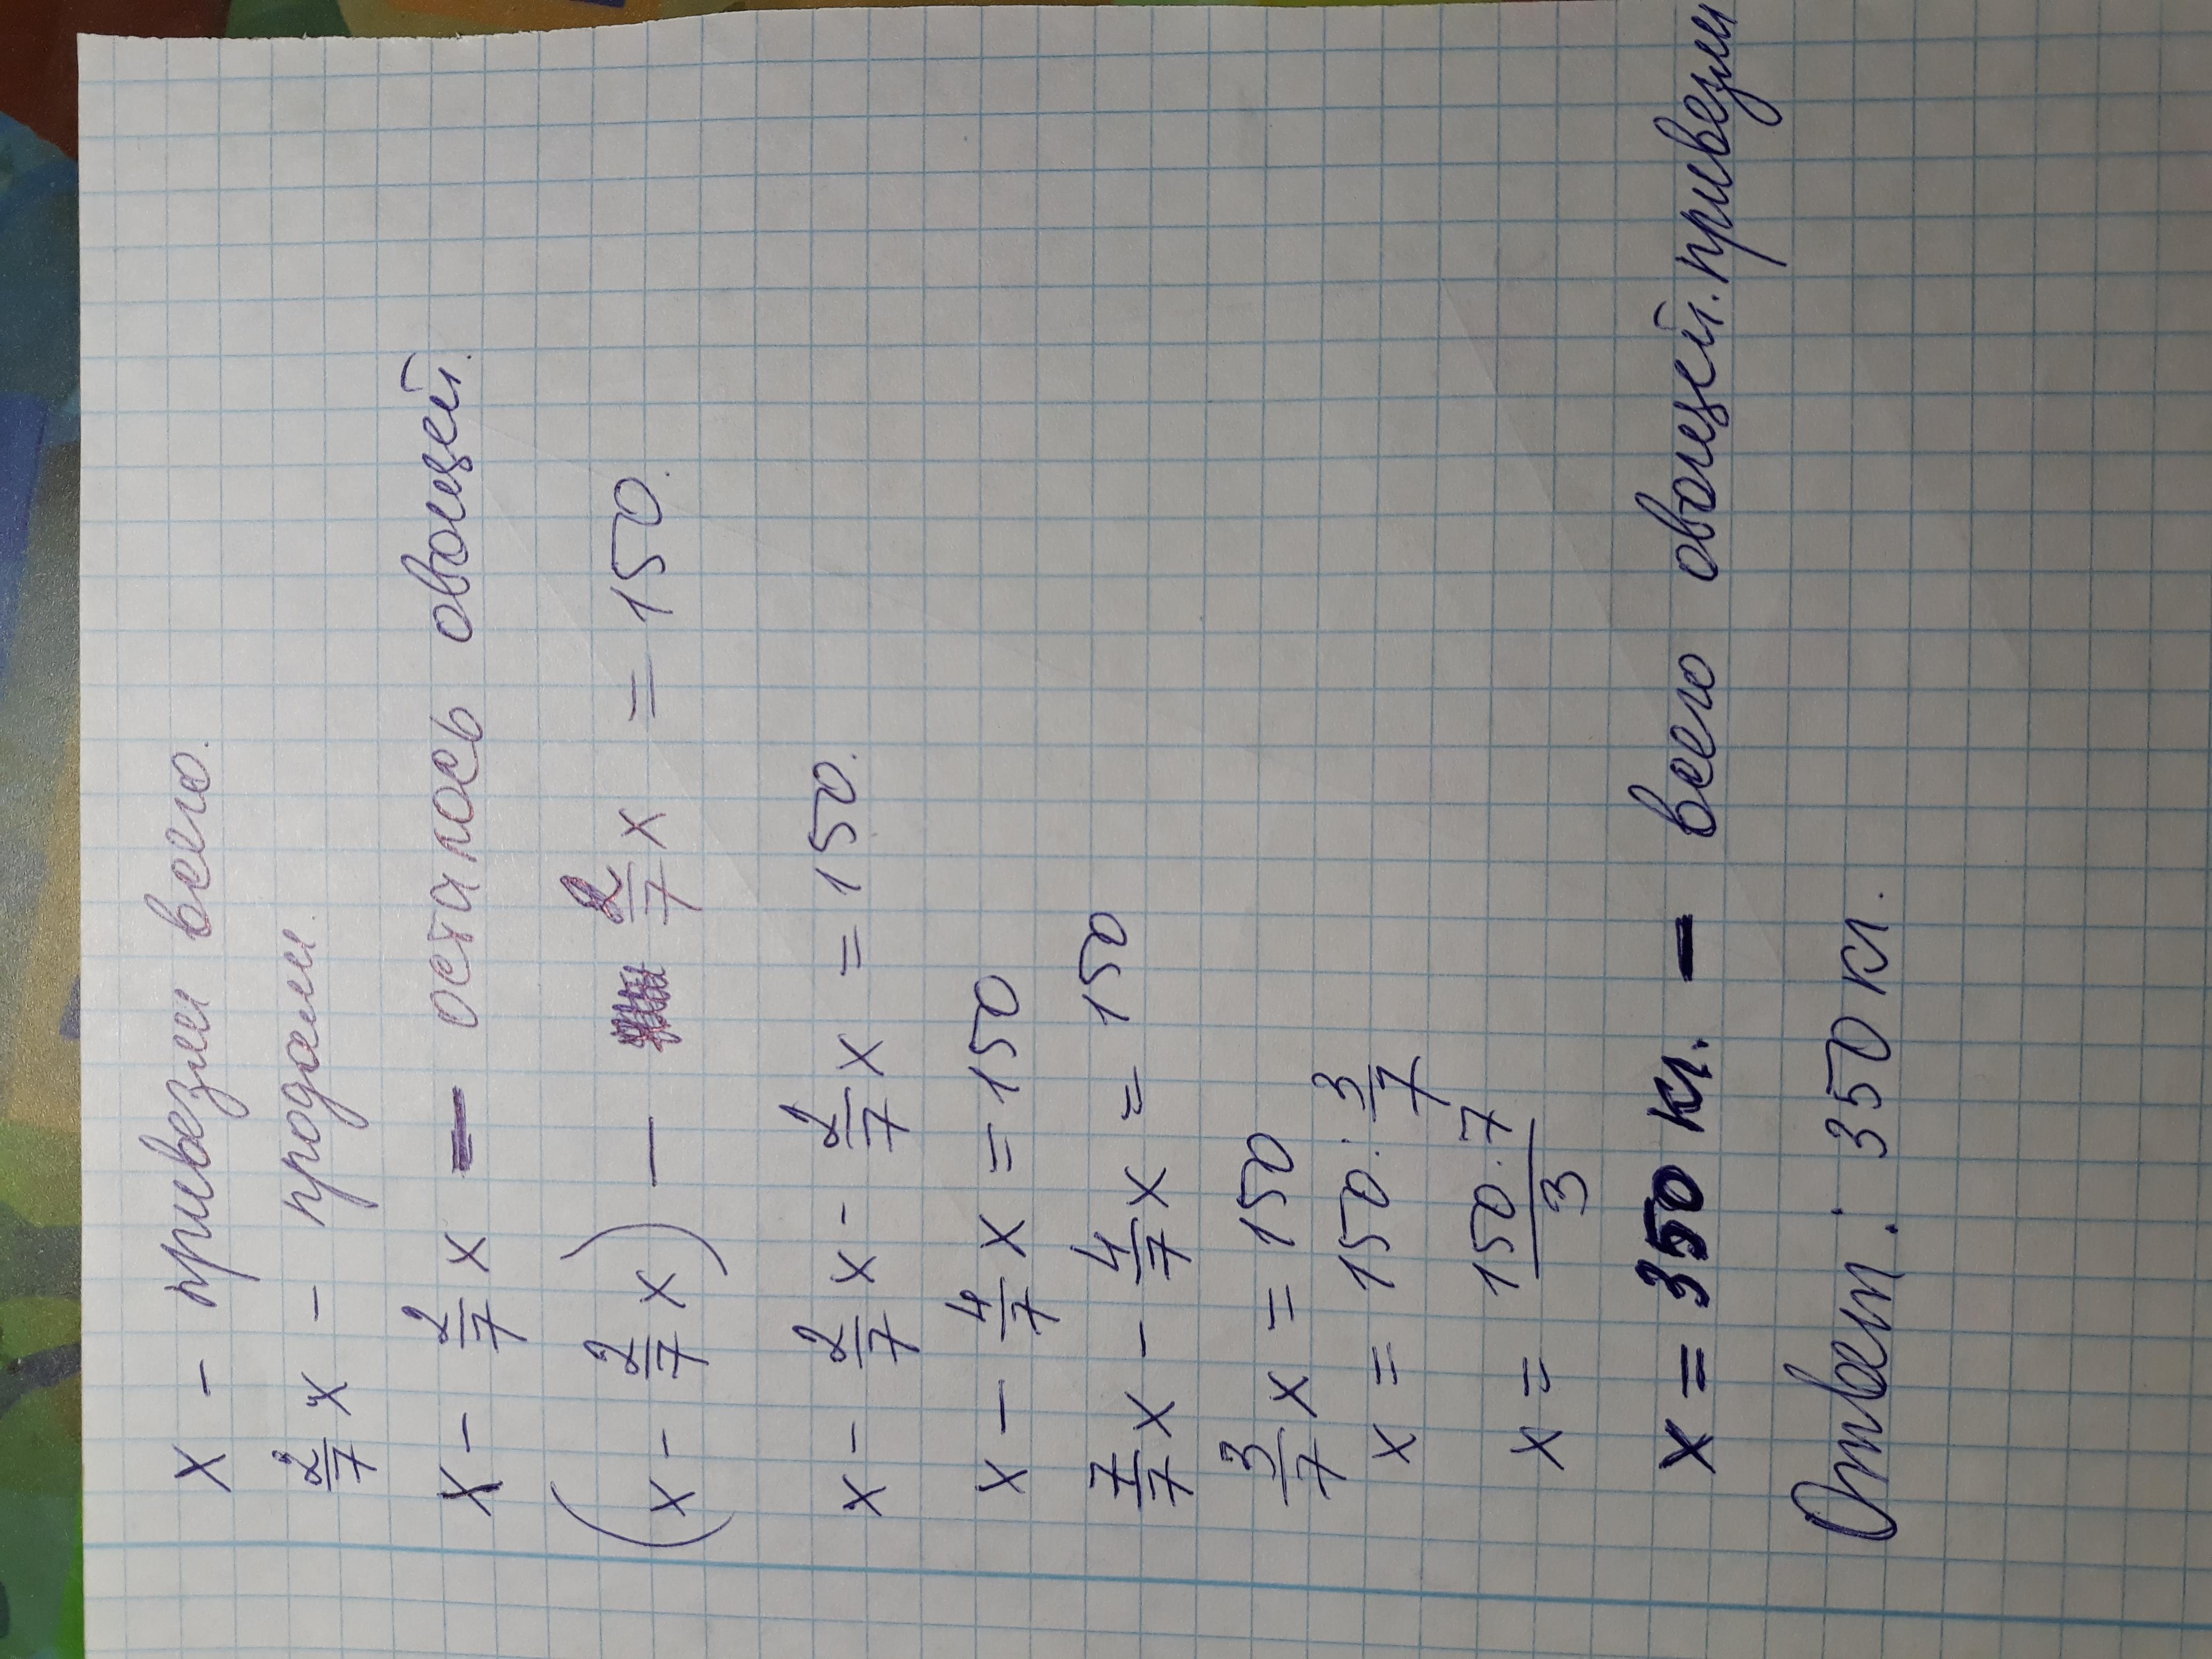 x - привезли всего.
2/7 x - продали.
x - 2/7 x - осталось овощей.
(x - 2/7 x) - 2/7 x = 150.
x - 2/7 x - 2/7 x = 150.
x - 4/7 x = 150
7/7 x - 4/7 x = 150
3/7 x = 150
x = 150 : 3/7
x = 150 · 7 / 3
x = 350 кг. - всего овощей. привезли
Ответ: 350 кг.